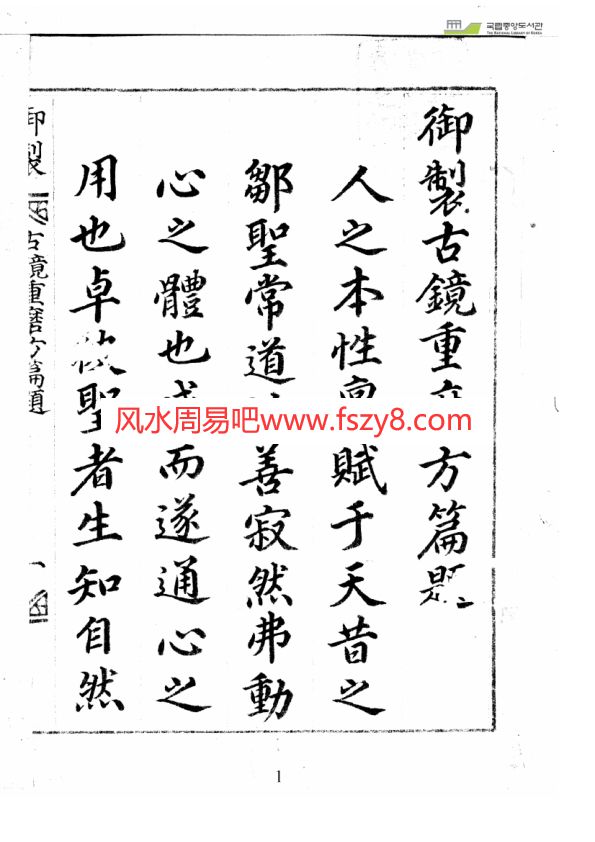 국립중앙도서관
THE NATIONAL LIBRARY OF KOREA
御製古鏡重方篇題
人之本性賦于天昔之
鄒聖常道善寂然弗動
心之體也而遂通心之
用也卓聖者生知自然
御製
古鏡重磨方篇題
一
风水周易吧www.fszy8.com
1